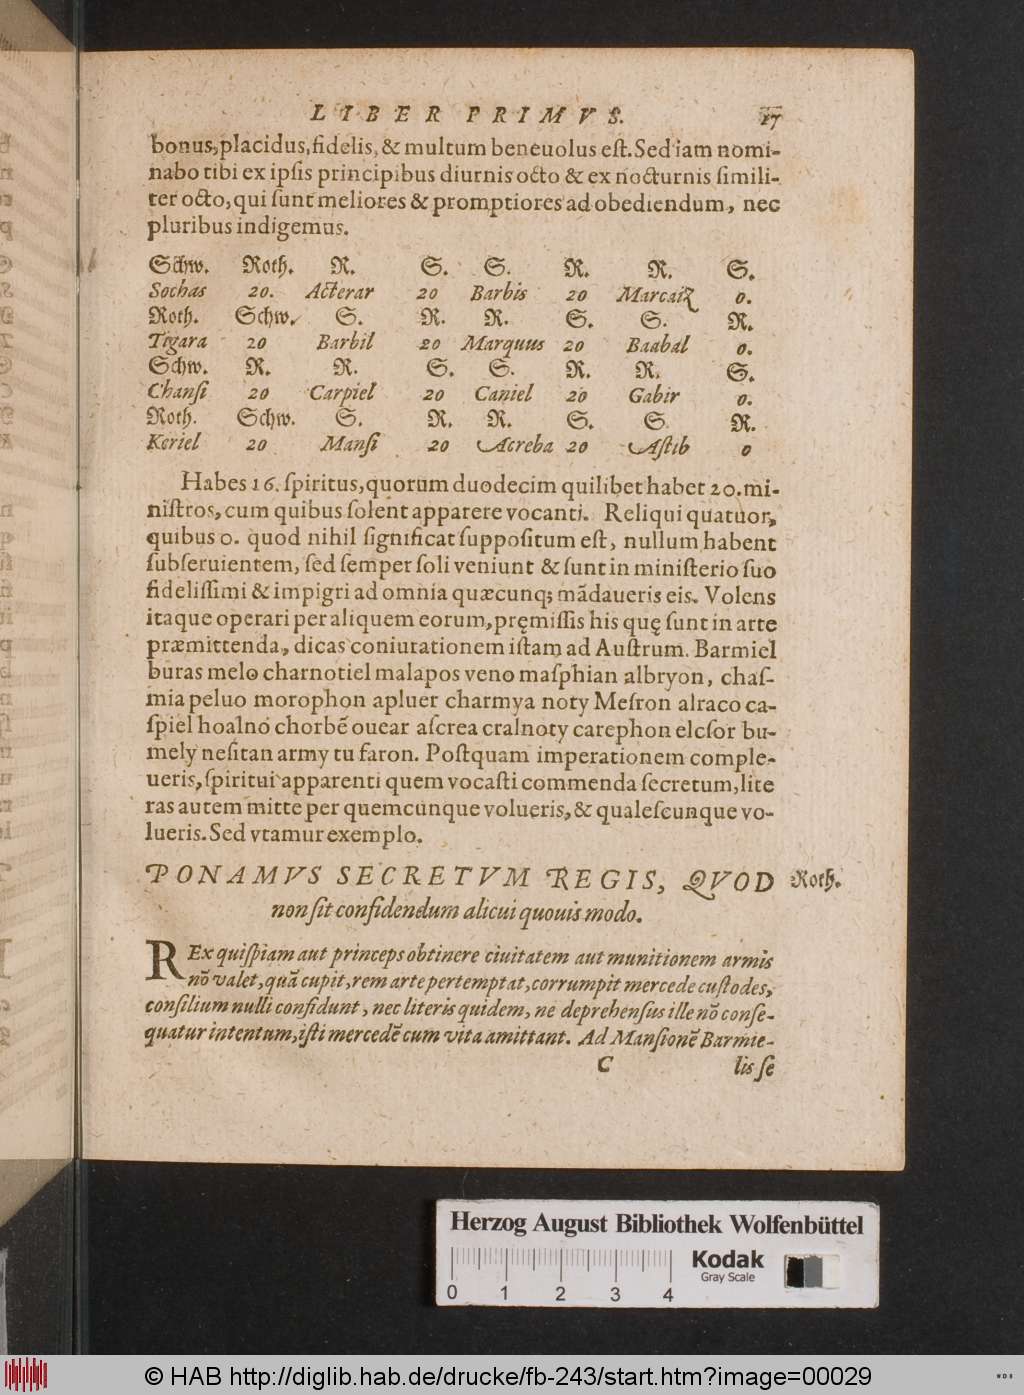 LIBER PRIMVS. 17
bonus, placidus, fidelis, & multum beneuolus eſt. Sed iam nomi-
nabo tibi ex ipſis principibus diurnis octo & ex nocturnis ſimili-
ter octo, qui ſunt meliores & promptiores ad obediendum, nec
pluribus indigemus.
Schw. Roth. R. S. S. R. R. S.
Sochas 20. Acterar 20 Barbis 20 Marcaiz 0.
Roth. Schw. S. R. R. S. S. R.
Tigara 20 Barbil 20 Marquus 20 Baabal 0.
Schw. R. R. S. S. R. R. S.
Chanſi 20 Carpiel 20 Caniel 20 Gabir 0.
Roth. Schw. S. R. R. S. S. R.
Keriel 20 Manſi 20 Acreba 20 Aſtib 0
Habes 16. ſpiritus, quorum duodecim quilibet habet 20. mi-
niſtros, cum quibus ſolent apparere vocanti. Reliqui quatuor,
quibus 0. quod nihil ſignificat ſuppoſitum eſt, nullum habent
ſubſeruientem, ſed ſemper ſoli veniunt & ſunt in miniſterio ſuo
fideliſſimi & impigri ad omnia quæcunq; mãdaueris eis. Volens
itaque operari per aliquem eorum, pręmiſſis his quę ſunt in arte
præmittenda, dicas coniurationem iſtam ad Auſtrum. Barmiel
buras melo charnotiel malapos veno maſphian albryon, chaſ-
mia peluo morophon apluer charmya noty Meſron alraco ca-
ſpiel hoalno chorbẽ ouear aſcrea cralnoty carephon elcſor bu-
mely neſitan army tu faron. Poſtquam imperationem comple-
ueris, ſpiritui apparenti quem vocaſti commenda ſecretum, lite
ras autem mitte per quemcunque volueris, & qualeſcunque vo-
lueris. Sed vtamur exemplo.
PONAMVS SECRETVM REGIS, QVOD Roth.
non ſit confidendum alicui quouis modo.
REx quiſpiam aut princeps obtinere ciuitatem aut munitionem armis
nõ valet, quã cupit, rem arte pertemptat, corrumpit mercede cuſtodes,
conſilium nulli confidunt, nec literis quidem, ne deprehenſus ille nõ conſe-
quatur intentum, iſti mercedẽ cum vita amittant. Ad Manſionẽ Barmie-
C lis ſe
Herzog August Bibliothek Wolfenbüttel
Kodak
Gray Scale
0 1 2 3 4
© HAB http://diglib.hab.de/drucke/fb-243/start.htm?image=00029